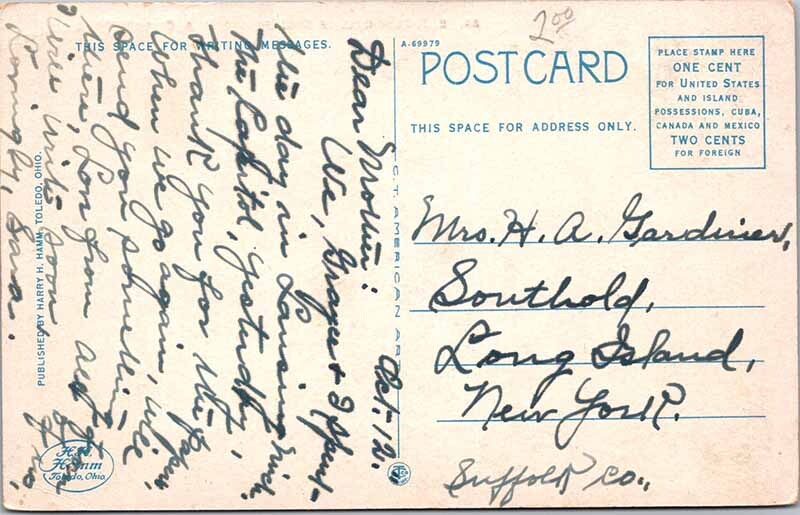 2.00
THIS SPACE FOR WRITING MESSAGES.
A-69979
POST CARD
THIS SPACE FOR ADDRESS ONLY.
PLACE STAMP HERE
ONE CENT
FOR UNITED STATES
AND ISLAND
POSSESSIONS, CUBA,
CANADA AND MEXICO
TWO CENTS
FOR FOREIGN
Oct. 12.
Dear Mother:
We, Grayce & I spent
the day in Lansing Mich.
The Capitol, yesterday,
Thank you for the paper,
When we go again, will
send you something
there, Lon from and
Will write soon
Lovingly, Sara.
Mrs. H. A. Gardiner,
Southold,
Long Island,
New York.
Suffolk Co.,
PUBLISHED BY HARRY H. HAMM, TOLEDO, OHIO.
C.T. AMERICAN ART
H.H.
Hamm
Toledo, Ohio